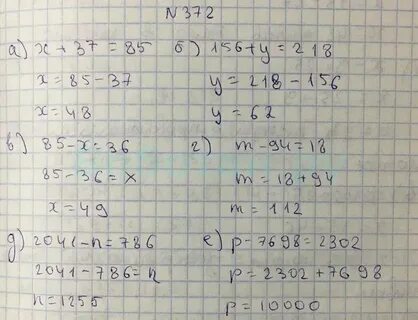 N372
а) x + 37 = 85 б) 156 + y = 218
x = 85 - 37 y = 218 - 156
x = 48 y = 62
в) 85 - x = 36 г) m - 94 = 18
85 - 36 = x m = 18 + 94
x = 49 m = 112
д) 2041 - n = 786 е) p - 7698 = 2302
2041 - 786 = n p = 2302 + 7698
n = 1255 p = 10000